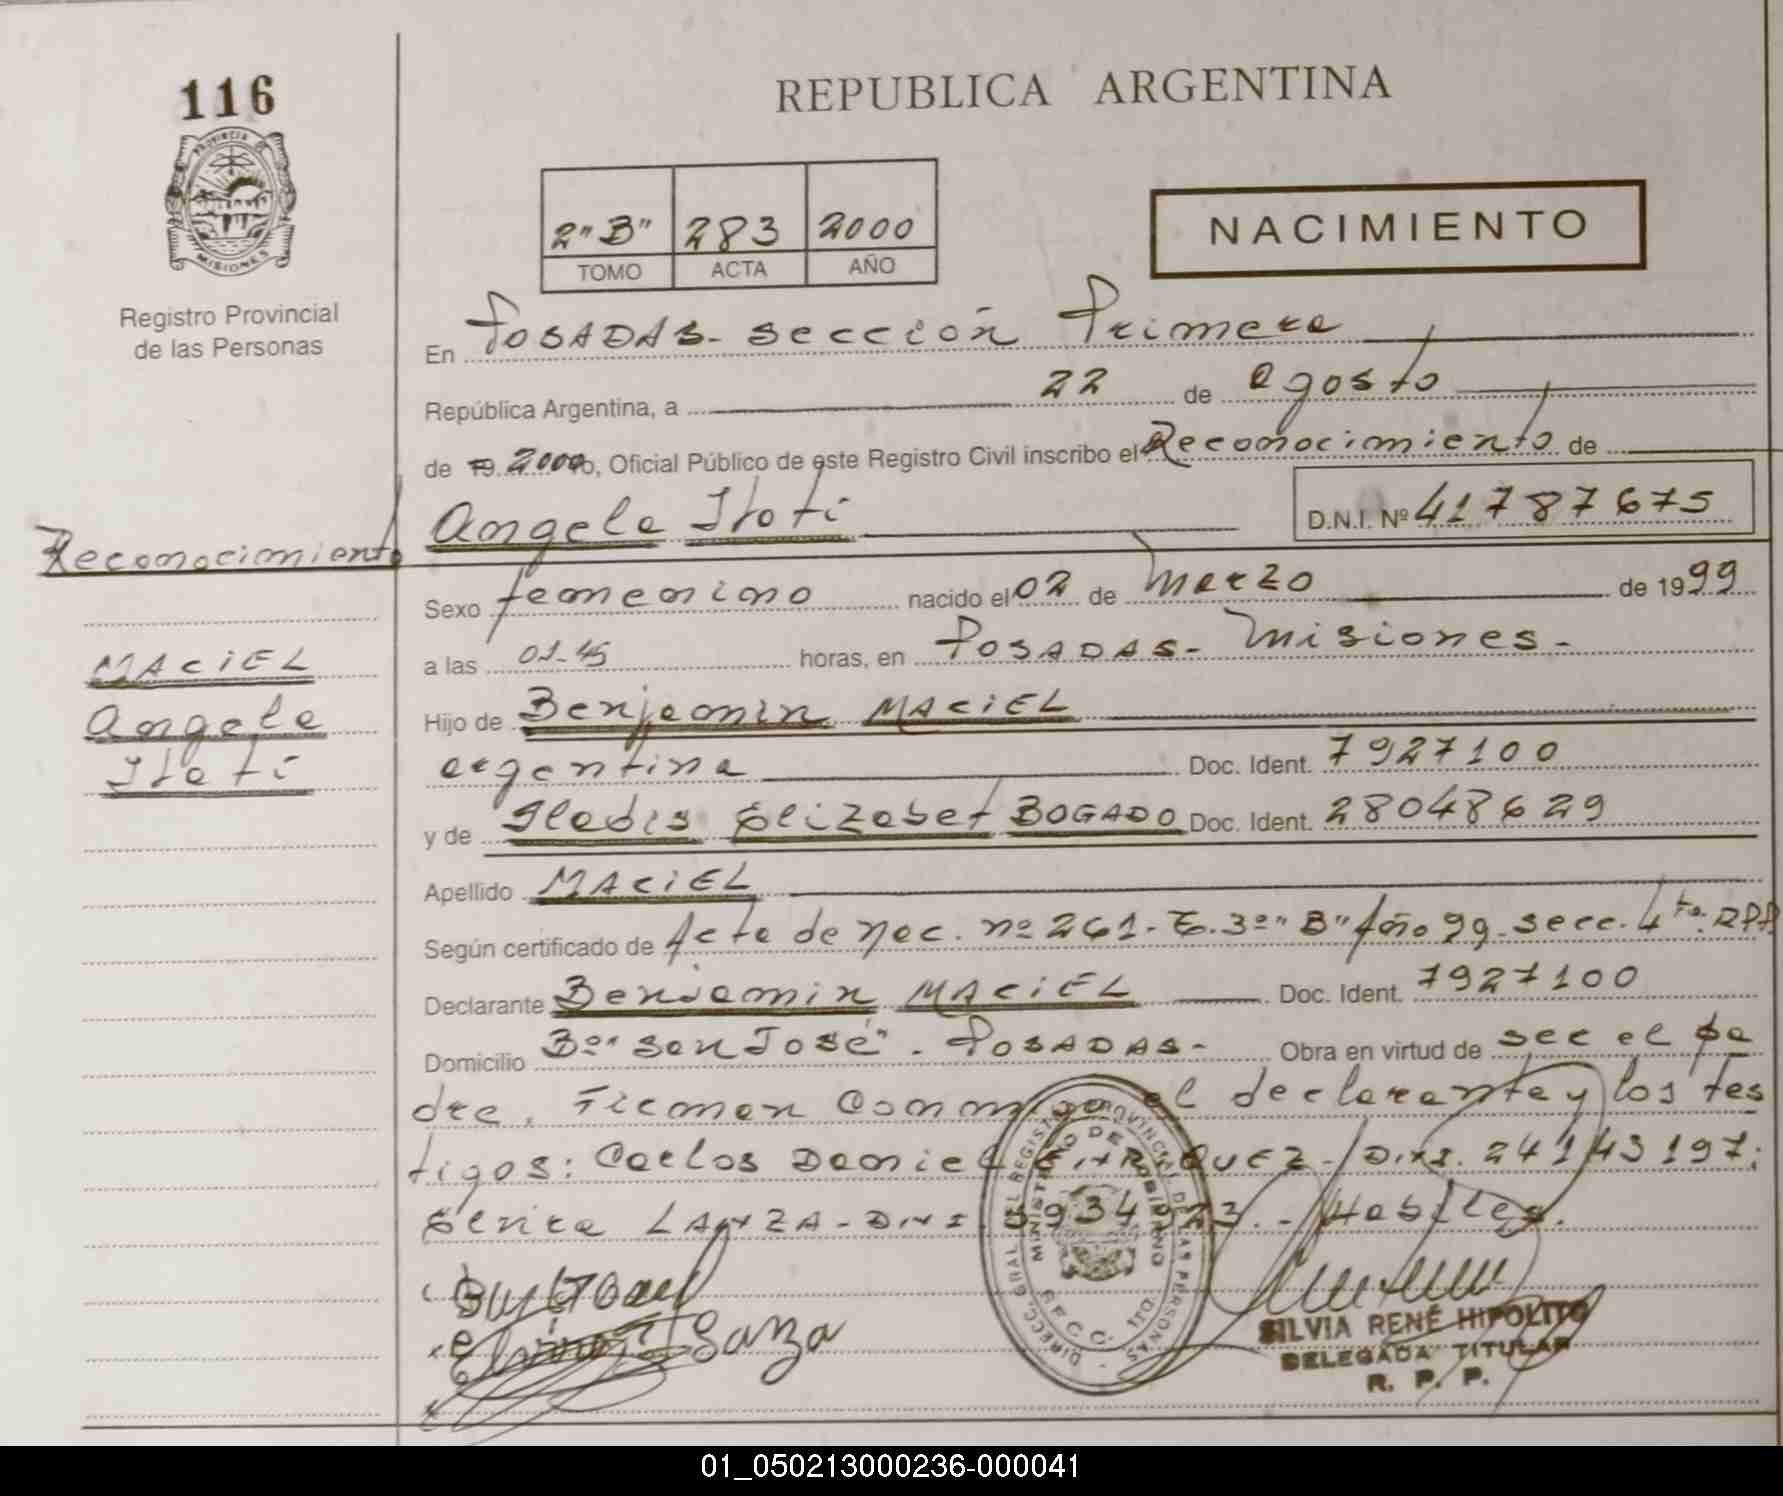 116
REPUBLICA ARGENTINA
PROVINCIA DE
MISIONES
Registro Provincial
de las Personas
2"B" 283 2000
TOMO ACTA AÑO
NACIMIENTO
En POSADAS - Sección Primera
República Argentina, a 22 de agosto
de 19 2000 yo, Oficial Público de este Registro Civil inscribo el Reconocimiento de
Angela Itati D.N.I. Nº 41787675
Reconocimiento
Sexo femenino nacido el 02 de Marzo de 1999
a las 01-45 horas, en POSADAS - Misiones -
MACiEL
Angela
Itati
Hijo de Benjamin MACiEL
argentina Doc. Ident. 7927100
y de Gladis Elizabet BOGADO Doc. Ident. 28048629
Apellido MACiEL
Según certificado de Acta de Nac. nº 261 - T. 3º "B" Año 99 - Secc. 4ta. RPP
Declarante Benjamin MACiEL Doc. Ident. 7927100
Domicilio Bº "San José" - POSADAS - Obra en virtud de ser el pa
dre, Firman Conmigo el declarante y los tes
tigos: Carlos Daniel D.N.I. 24143197;
LANZA - D.N.I. Habiles.
Lanza
SILVIA RENÉ HIPOLITO
DELEGADA TITULAR
R. P. P.
01_050213000236-000041